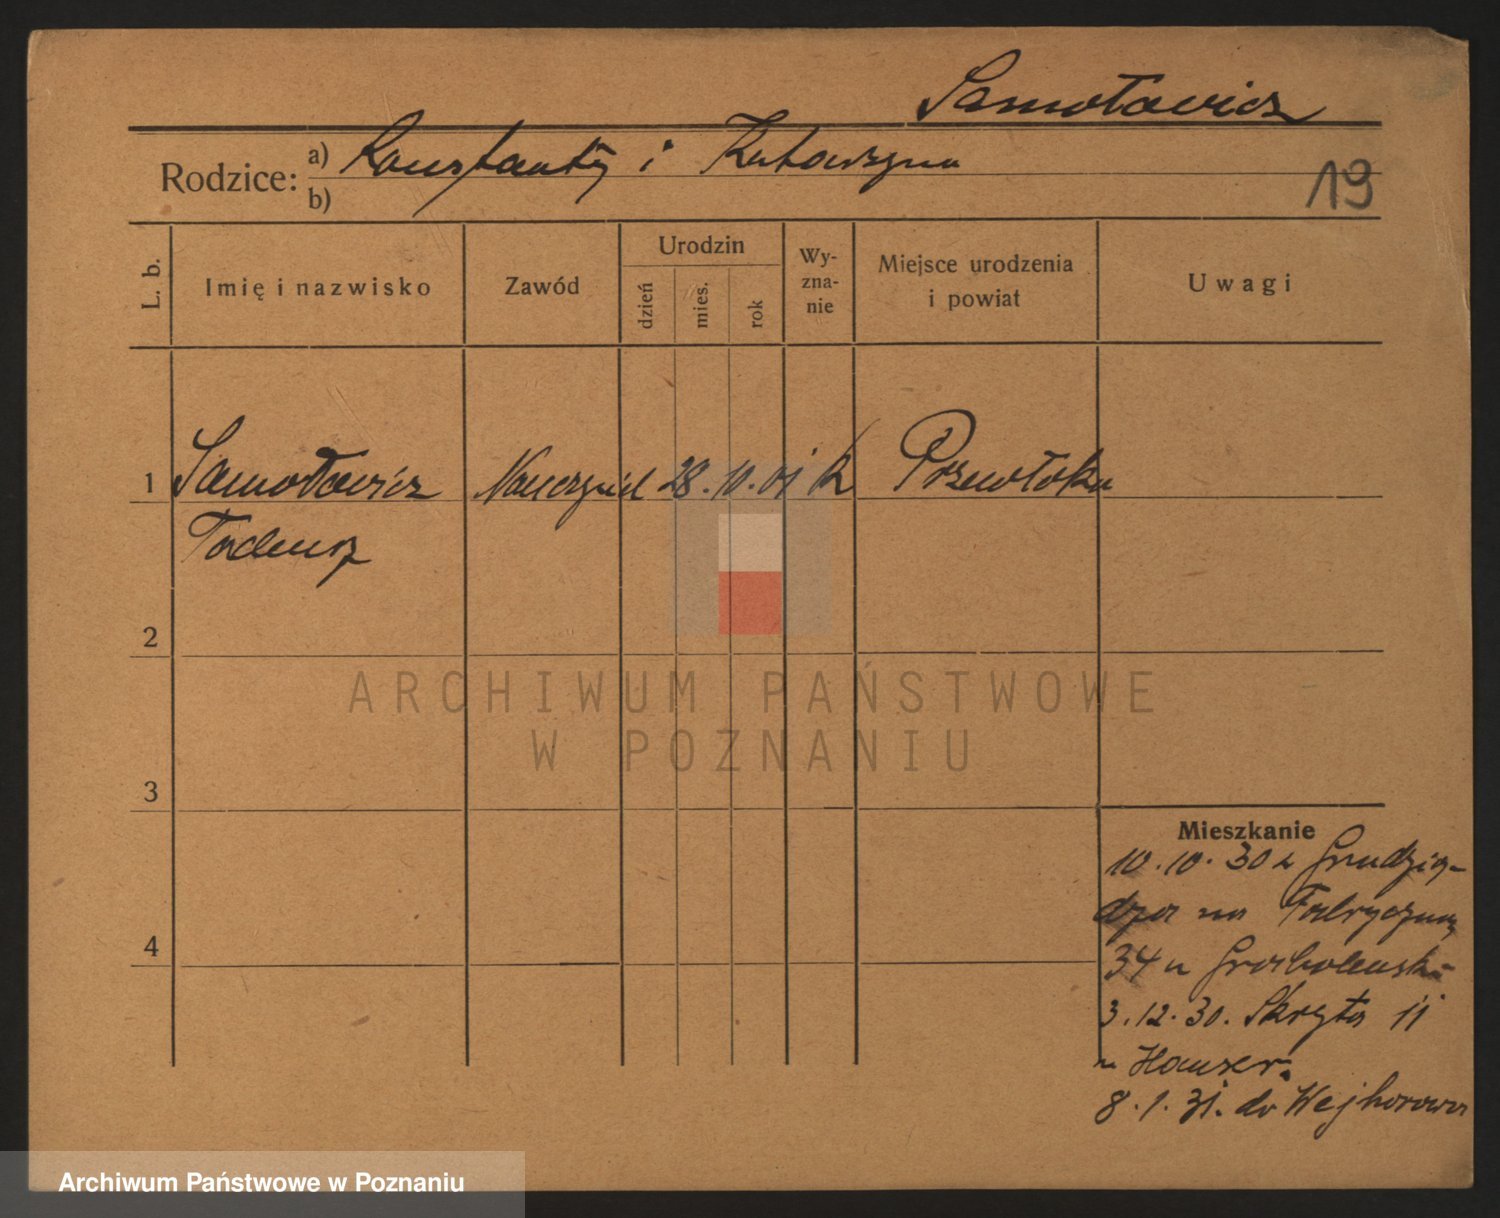 Samołowicz
Rodzice: a) Konstanty i Katarzyna
b)
19
L. b.
Imię i nazwisko
Zawód
Urodzin
dzień
mies.
rok
Wy-
zna-
nie
Miejsce urodzenia
i powiat
Uwagi
1 Samołowicz Nauczyciel 28. 10. 01 k Przewłoka
Tadeusz
2
ARCHIWUM PAŃSTWOWE
W POZNANIU
3
Mieszkanie
10.10.30 z Grudzią-
dza na Fabryczną
4
34 u Grabolewsk
3.12.30. Skryta 11
u Hauser.
8.1.31. do Wejherowa
Archiwum Państwowe w Poznaniu